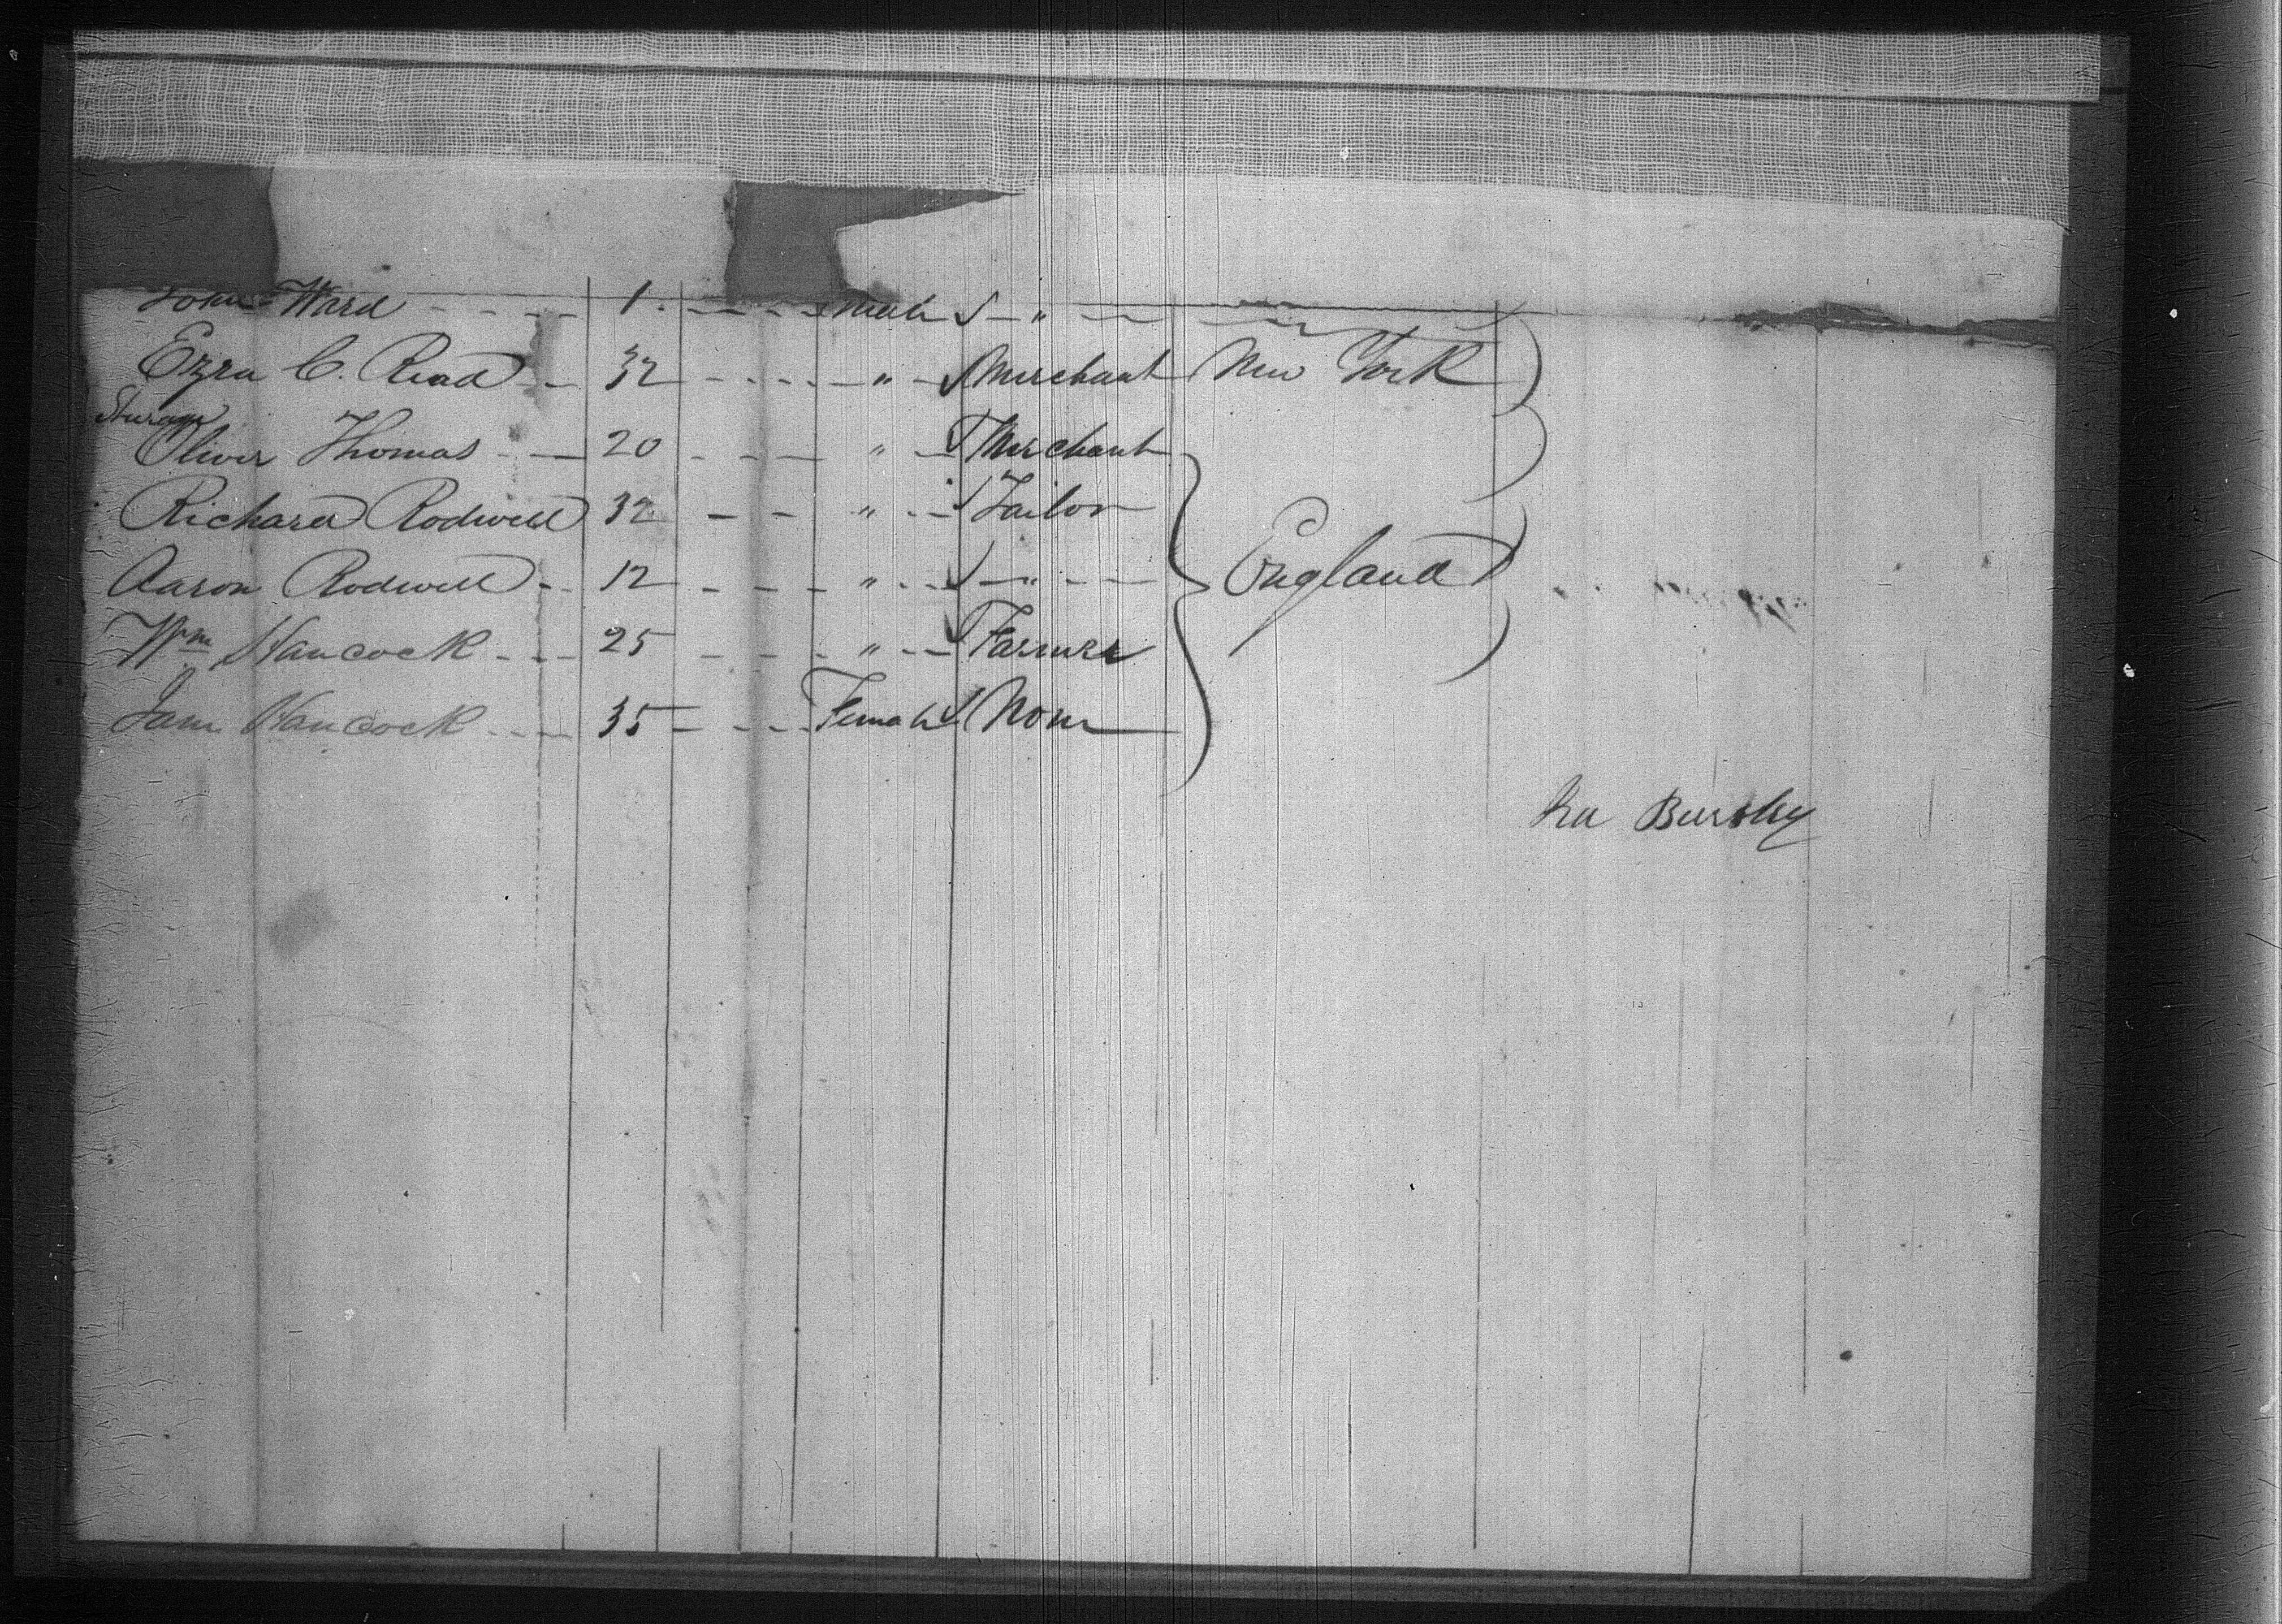 John Ward - - - - 1 - - - - Male - " - -
Ezra C. Read - - 32 - - - - " - Merchant New York
Sturage
Oliver Thomas - - 20 - - - " - Merchant
Richard Rodwell 32 - - " - - Tailor
Aaron Rodwell - - 12 - - - " - - - " - - England
Wm Hancock - - - 25 - - - - " - - Farmer
Jane Hancock - - - 35 - - - - Female None
Ira Bursley